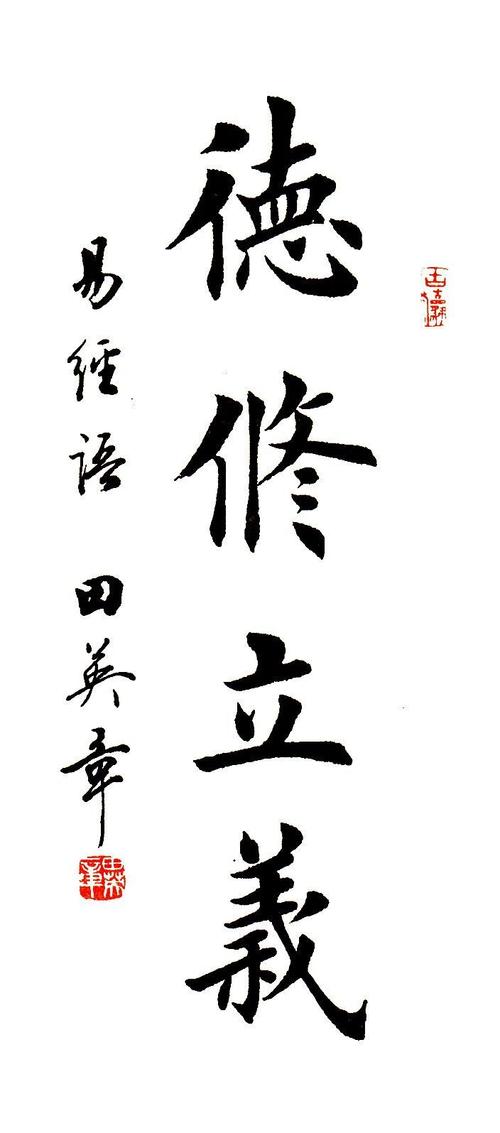 德修立義
易經語 田英章